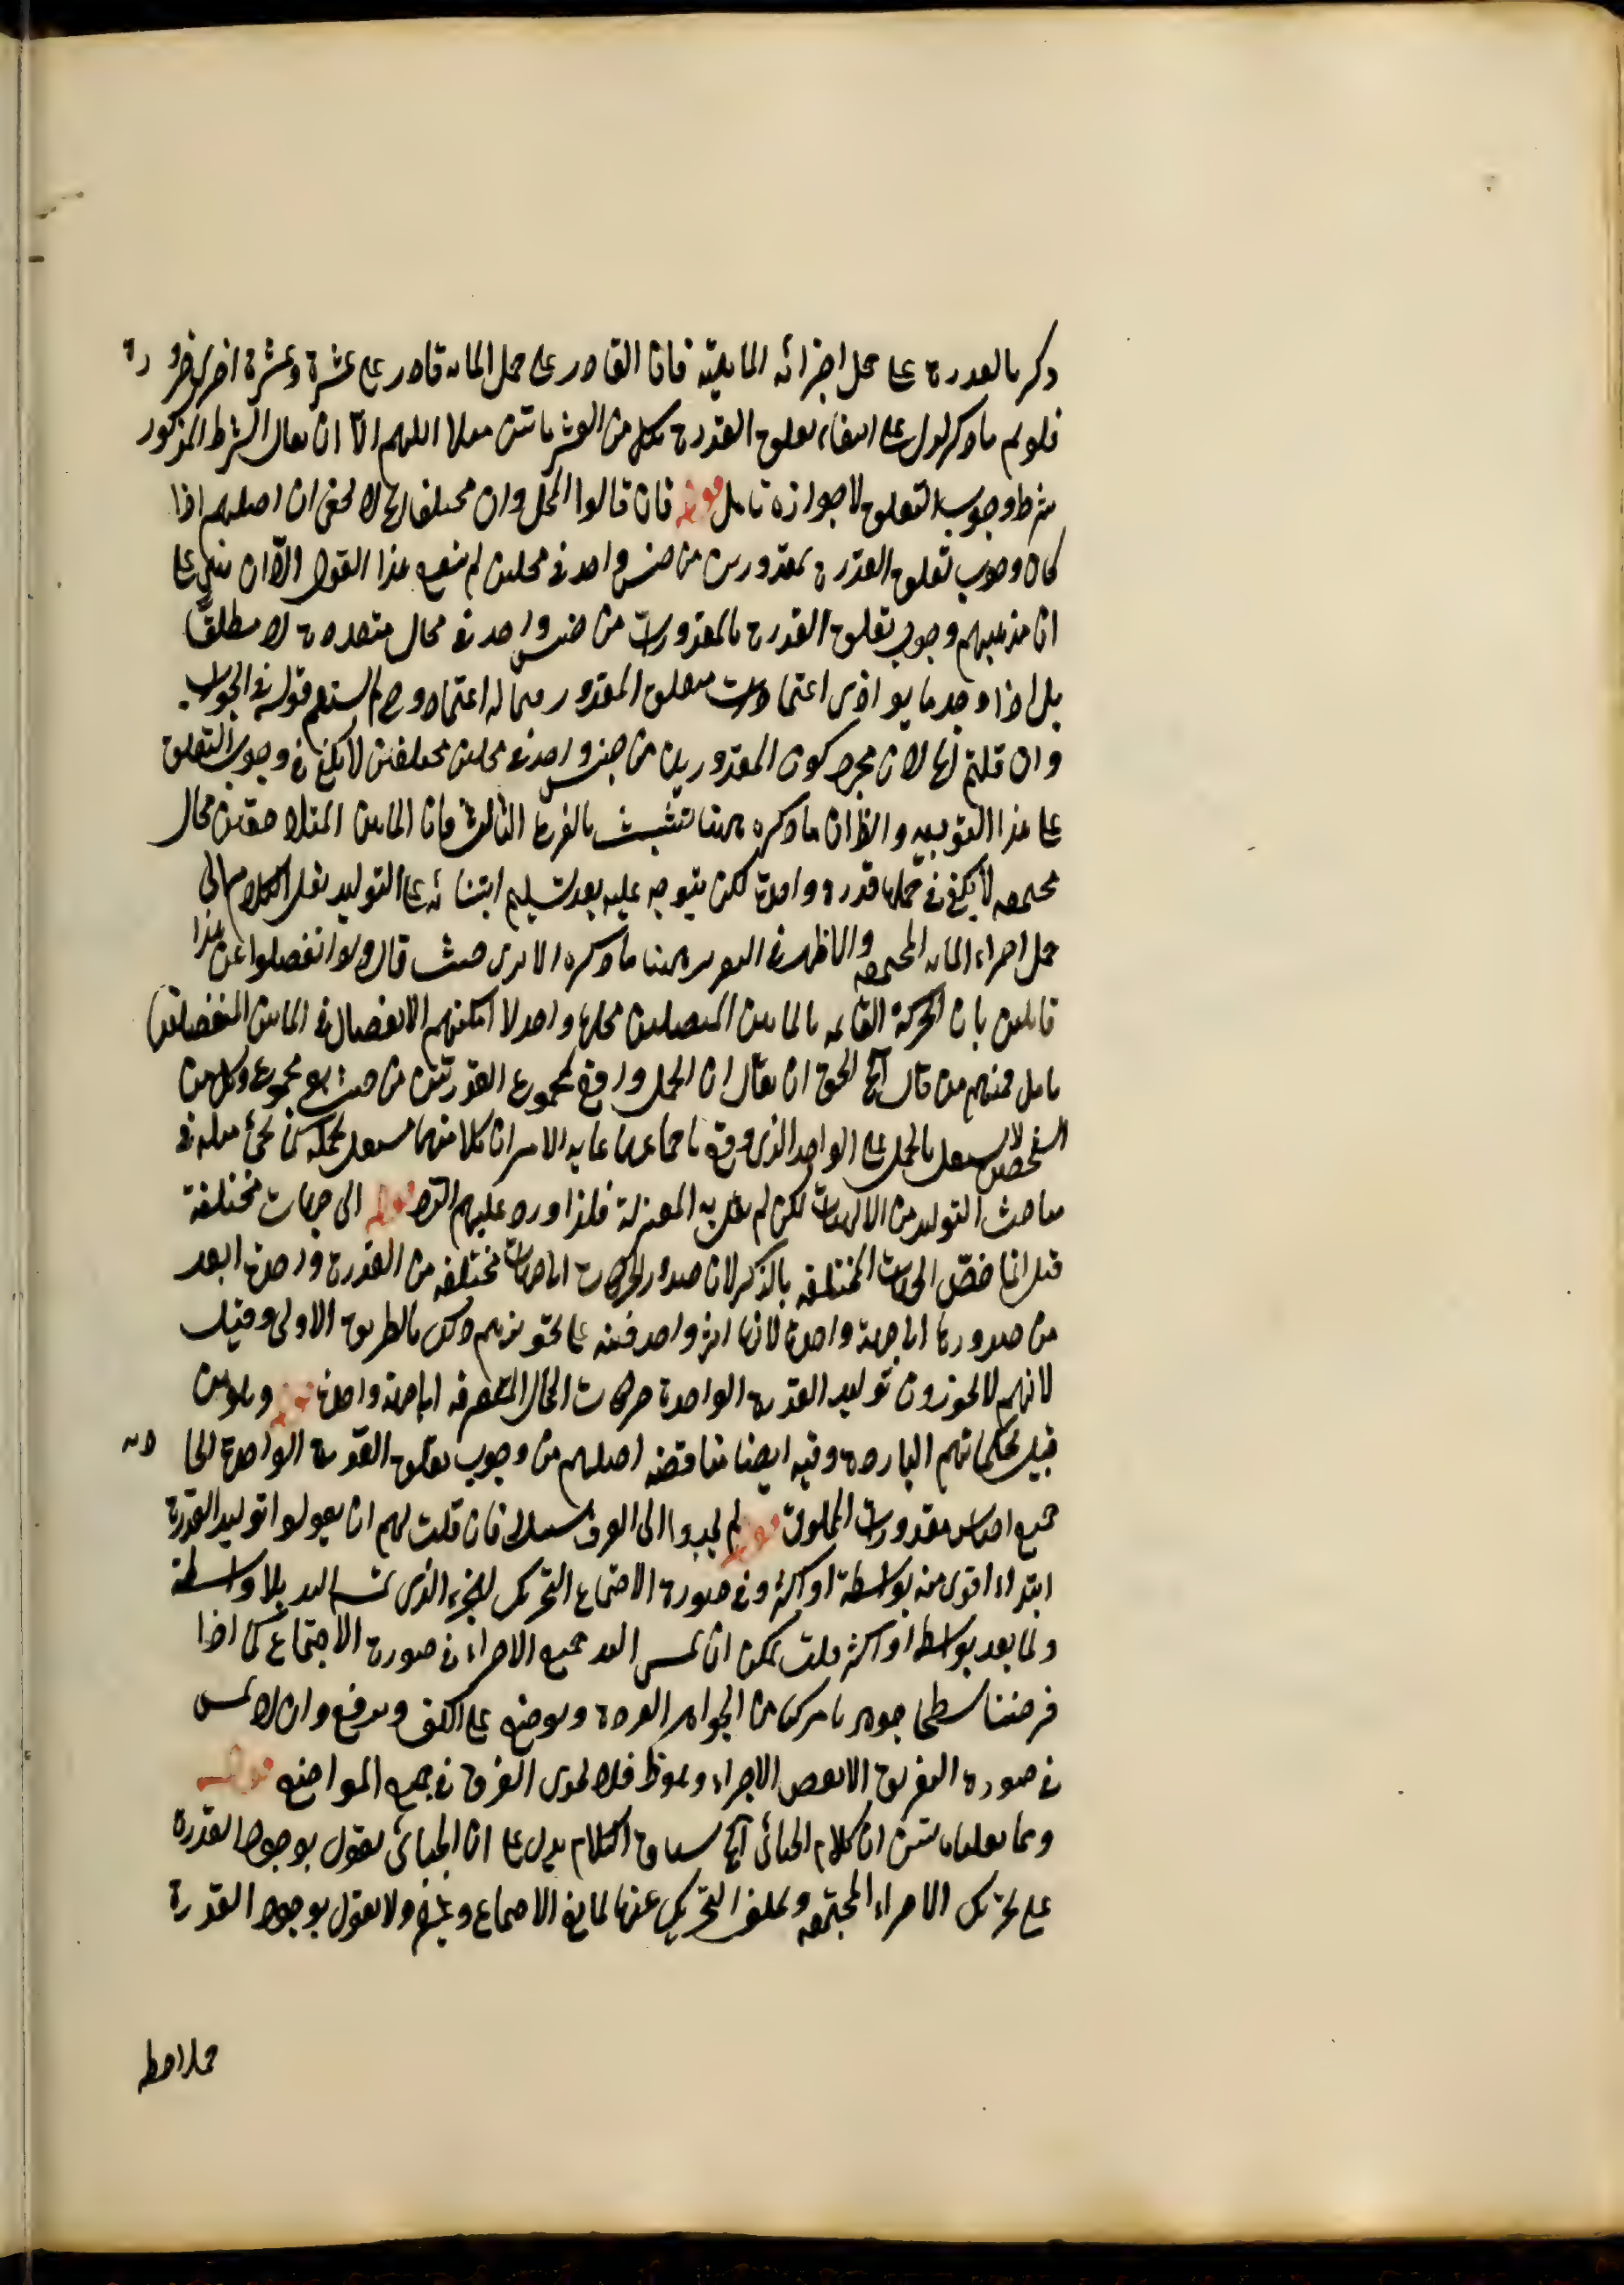 ذكر بالقدرة على حمل اجزائه المايية فان القادر على حمل المائه قادر على عشرة وعشرة اخرى ضرورة
فلو تم ما ذكر لدل على انتفاء تعلق القدرة بكل من العشرتين مثلا اللهم الا ان يقال الشرط المذكور
شرط وجوب التعلق لا جوازه تأمل قوله فان قالوا المحل وان مختلف الخ لا يخفى ان اصلهم اذا
كان وجوب تعلق القدرة بمقدورين من جنس واحد في محلين لم ينفعه هذا القول الا ان يبنى على
ان مذهبهم وجوب تعلق القدرة بالمقدورات من جنس واحد في محال متعددة لا مطلقا
بل اذا وجد ما يوازى اعتمادات متعلق المقدور مما له اعتماد وح لم يستقم قوله في الجواب
وان قلتم الخ لان مجرد كون المقدورين من جنس واحد في محلين مختلفين لا يكفي في وجوب التعلق
على هذا التوجيه والظ ان ما ذكره ههنا تشبث بالفرع الثالث فان المايين المتلاصقتين محال
مجتمعه لا يكفي في حملها قدرة واحدة لكن يتوجه عليه بعد تسليم ابتنائه على التوليد نقل الكلام الى
حمل اجزاء المائه المجتمعه والاظهر في التقرير ههنا ما ذكره الامدى حيث قال ولو انفصلوا عن هذا
قائلين بان الحركة القائمه بالمايين المتصلين محلها واحد لا يمكنهم الانفصال في المايين المنفصلين
تأمل فمنهم من قال الخ الحق ان يقال ان الحمل واقع بمجموع القدرتين من حيث هو مجموع وكل من
الشخصين لا يستقل بالحمل على الواحد الذى وقع باجتماعهما غايه الامر ان كلا منهما مستقل بحمله كما يجئ مثله في
مباحث التوليد من الالهيات لكن لم يقل به المعتزلة فلذا ورد عليهم الترديد قوله الى جهات مختلفة
قيل انما خص الجهات المختلفه بالذكر لان صدور الحركات الى جهات مختلفه من القدرة الواحدة ابعد
من صدورها الى جهة واحدة لانها اثر واحد فنفيه على تجويزهم ذلك بالطريق الاولى وقيل
لانهم لا يجوزون توليد القدرة الواحدة حركات المحال المتفرقه الى جهة واحدة قوله وهو من
قبيل تحكماتهم الباردة وفيه ايضا مناقضة اصلهم من وجوب تعلق القدرة الواحدة الحادثه
جميع اجناس مقدورات المخلوق قوله لم يجدوا الى الفرق سبيلا فان قلت لهم ان يقولوا توليد القدرة
ابتداء اقوى منه بواسطة او اكثر وفي صورة الاجتماع التحريك للجزء الذى تمسه اليد بلا واسطة
ولما بعد بواسطة او اكثر قلت يمكن ان تمس اليد جميع الاجزاء في صورة الاجتماع كما اذا
فرضنا سطحا جوهريا مركبا من الجواهر الفردة ويوضع على الكف ويرفع وان لا تمس
في صورة التفريق الا بعض الاجزاء وهو ظ فلا يجدى الفرق في جميع المواضع قوله
ومما يعلم ان كلام الجبائى الخ سياق الكلام يدل على ان الجبائى يقول بوجود القدرة
على تحريك الاجزاء المجتمعه وتخلف التحريك عنها لمانع الاجتماع وغيره ولا يقول بوجود القدرة